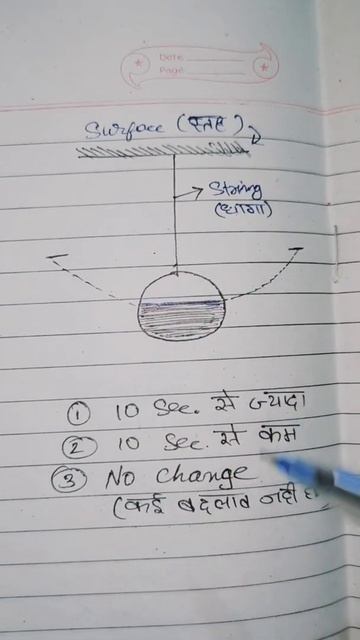 Date
Page
Surface (स्तह)
String
(धागा)
① 10 Sec. से ज्यादा
② 10 Sec. से कम
③ No Change
(कई बदलाव नही